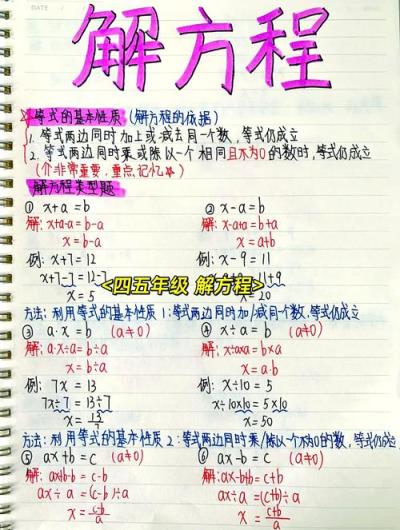 DATE
解方程
等式的基本性质 (解方程的依据)
1. 等式两边同时加上或减去同一个数, 等式仍成立
2. 等式两边同时乘或除以一个相同且不为0的数时, 等式仍成立
(个非常重要, 重点记忆☆)
解方程类型题
① x+a=b
② x-a=b
解: x+a-a=b-a
解: x-a+a=b+a
x=b-a
x=a+b
例: x+7=12
例: x-9=11
x+7-7=12-7
11+9
x=5
x=20
<四五年级 解方程>
方法: 利用等式的基本性质1: 等式两边同时加/减同一个数, 等式仍成立
③ a·x=b (a≠0)
④ x÷a=b (a≠0)
解: a·x÷a=b÷a
解: x÷a×a=b×a
x=b÷a
x=a·b
例: 7x=13
例: x÷10=5
7x÷7=13÷7
x÷10×10=5×10
x=13/7
x=50
方法: 利用等式的基本性质2: 等式两边同时乘/除以一个不为0的数, 等式仍成立
⑤ ax+b=c (a≠0)
⑥ ax-b=c (a≠0)
解: ax+b-b=c-b
解: ax-b+b=c+b
ax÷a=(c-b)÷a
ax÷a=(c+b)÷a
x=c-b/a
x=c+b/a